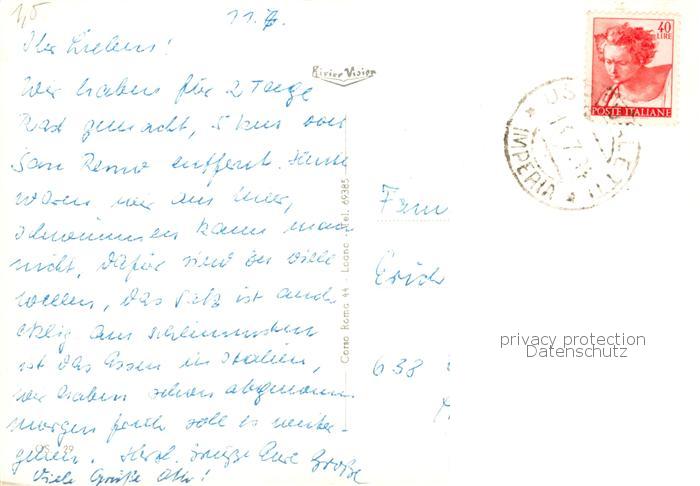 11.7.
Ihr Lieben!
Wir haben für 2 Tage
Rast gemacht, 5 km von
San Remo entfernt. Heute
waren wir am Meer,
schwimmen kann man
nicht, dafür sind zu viele
Wellen, das Salz ist auch
eklig am schlimmsten
ist das Essen in Italien,
wir haben schon abgenomm
morgen früh soll es weiter-
gehen. Herzl. Grüße Eure Große
Viele Grüße Otto!
Rivier Vision
Corso Roma 44 - Loano - Tel. 69385
Fam
Erich
638
40
LIRE
POSTE ITALIANE
IMPERIA
privacy protection
Datenschutz